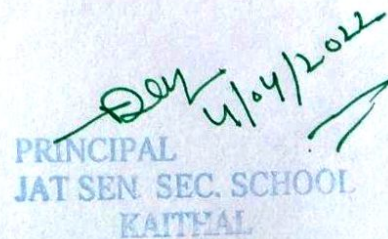 4/04/2022
PRINCIPAL
JAT SEN. SEC. SCHOOL
KAITHAL